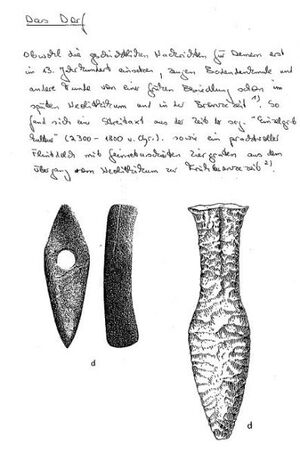 Das Dorf
Obwohl die geschichtlichen Nachrichten für Demern erst
im 13. Jahrhundert einsetzen, zeugen Bodendenkmale und
andere Funde von einer frühen Besiedlung schon im
späten Neolithikum und in der Bronzezeit 1). So
fand sich ein Streitaxt aus der Zeit der sog. "Einzelgrab
kultur" (2300 - 1800 v. Chr.), sowie ein prachtvoller
Flintdolch mit feinretuschierten Ziergraten aus dem
Übergang vom Neolithikum zur Frühbronzezeit 2).
d
d